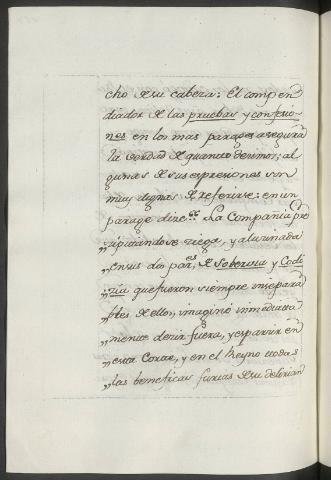 cho de su cabeza: el compen
diador de las pruebas y confesio-
nes en los mas parages asegura
la verdad de quanto decimos; al
gunas de sus expresiones son
muy dignas de referirse: en un
parage dice: La Compañia pre
„cipitandose ciega, y alucinada
„en sus dos par.es de Sobervia y Codi
„zia que fueron siempre insepara
„bles de ellos, imaginó inmediata
„mente de rir fuera, y esparrir en
„esta Corte, y en el Reyno todas
„las beneficas furias de su delorian